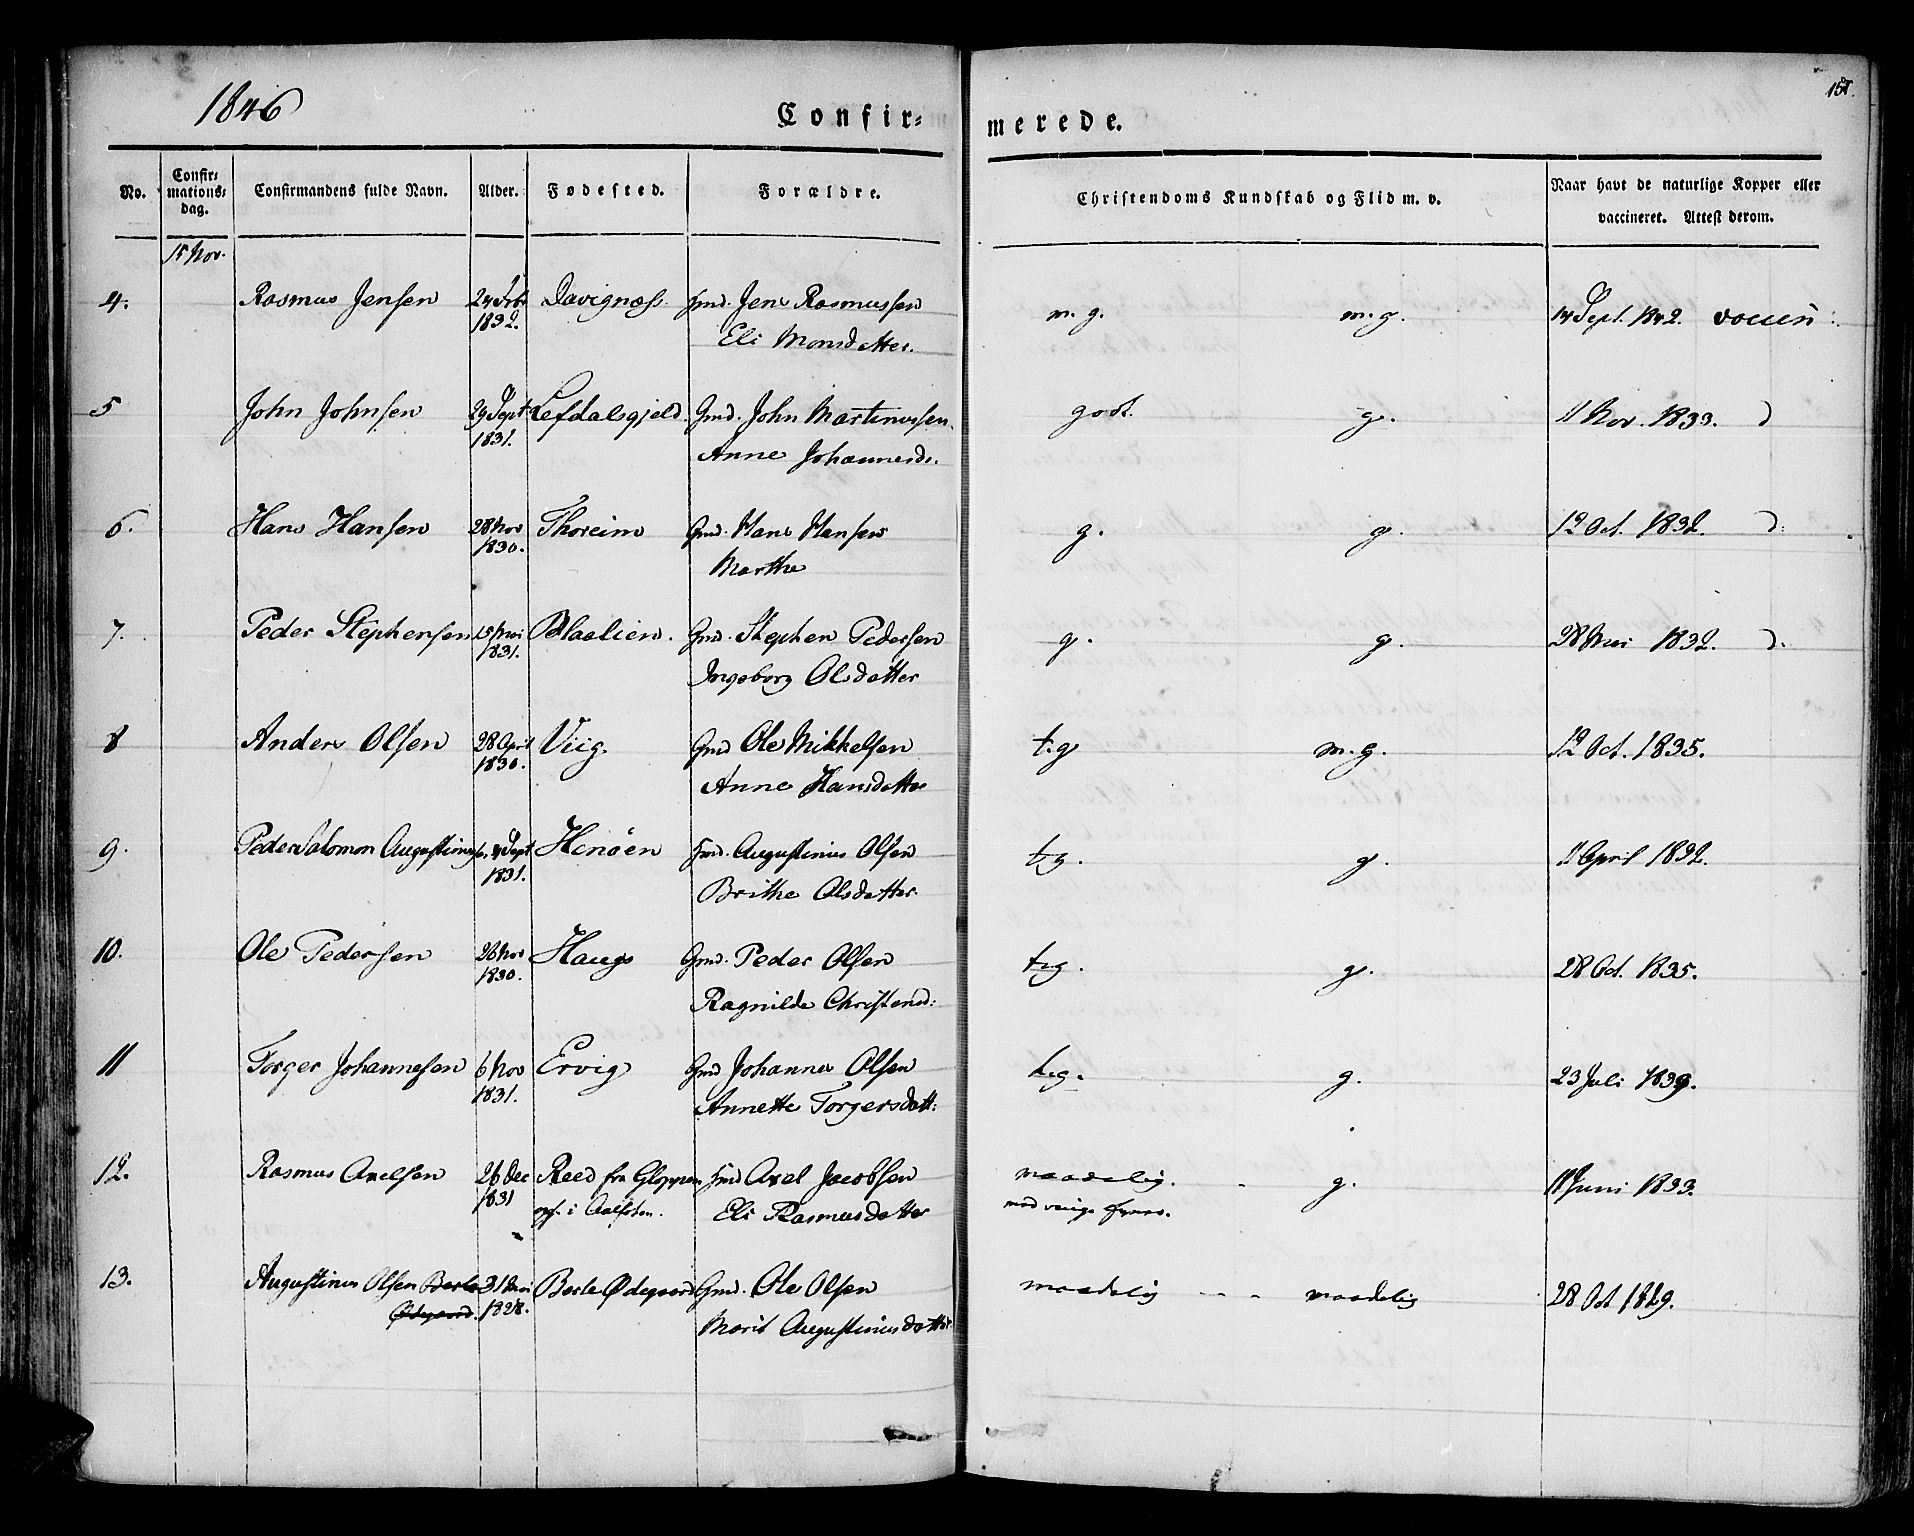 1846
Confir=
merede.
151.
No.
Confir=
mations=
dag.
Confirmandens fulde Navn.
Alder.
Fødested.
Forældre.
Christendoms Kundskab og Flid m. v.
Naar havt de naturlige Kopper eller
vaccineret. Attest derom.
15 Nov.
4. Rasmus Jensen 24 Febr Davignæs. Hmd. Jens Rasmussen m. g. m. g. 14 Sept. 1842.
1832. Eli Monsdatter.
5 John Johnsen 29 Sept Lefdalsgjeld. Gmd. John Martinussen. godt. g. 11 Nov. 1833. D
1831. Anne Johannesd.
6. Hans Hansen 28 Nov Thoreim Gmd. Hans Hansen g. g. 12 Oct. 1832. D:
1830. Marthe
7. Peder Stephensen 15 Mai Blaalien. Gmd. Stephen Pedersen g. g. 28 Mai 1832. D.
1831. Ingeborg Olsdatter
8 Anders Olsen 28 April Viig. Gmd Ole Mikkelsen t. g m. g. 12 Oct. 1835.
1830. Anne Hansdatter
9. Peder Salomon Augustinus. Sept Henøen Hmd. Augustinus Olsen t. g. g. 11 April 1832.
1831. Brithe Olsdatter
10. Ole Pedersen 26 Nov Hauge Gmd. Peder Olsen t. g. g. 28 Oct. 1835.
1830. Ragnilde Christensd:
11 Torger Johannesen 6 Nov Ervig Gmd Johannes Olsen t. g. g. 23 Juli 1839.
1831. Annette Torgersdatt:
12. Rasmus Axelsen 26 Dec Reed fra Gloppen Hmd Axel Jacobsen maadelig. g. 11 Juni 1833.
1831 opf. i Aalfoten. Eli Rasmusdatter med
13. Augustinus Olsen Berle 31 Mai Berle Ødegaard Gmd. Ole Olsen maadelig maadelig 28 Oct 1829.
Ødegaard. 1828. Marit Augustinusdatter